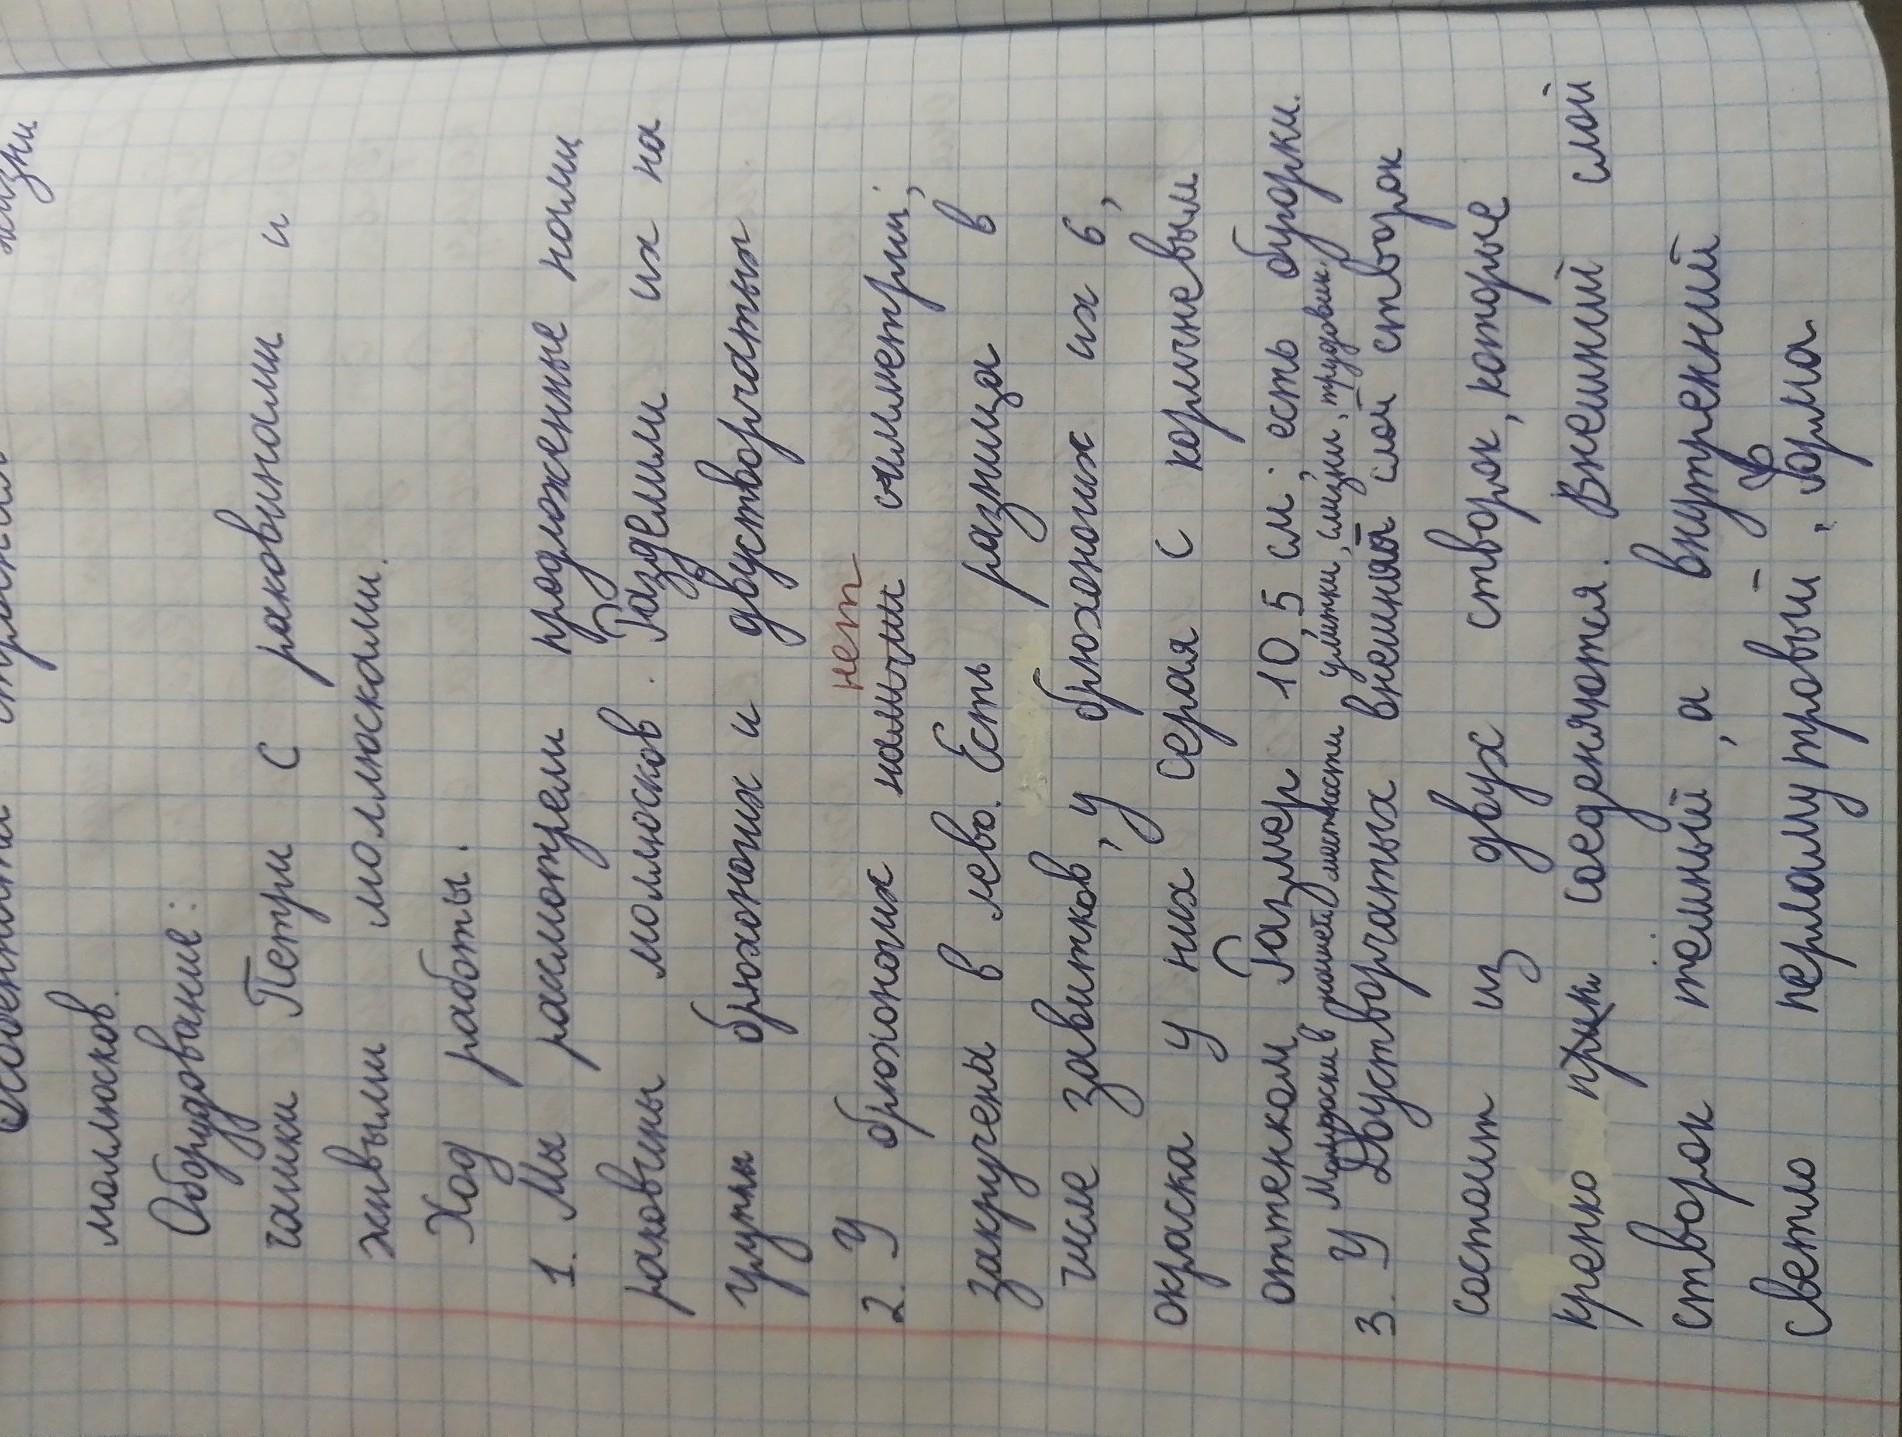 Особенности строения жизни
моллюсков.
Оборудование:
чашки Петри с раковинами и
живыми моллюсками.
Ход работы.
1. Мы расмотрели продложенные нами
раковины моллюсков. Разделили их на
групы брюхоногих и двустворчатых
нет
2. У брюхоногих наличии симметрии,
закручены в лево. Есть разница в
числе завитков, у брюхоногих их 6,
окраска у них серая с коричневым
оттенком Размер 10,5 см. есть бугорки.
У Моллюски в нашей местности улитки, слизни, прудовик.
3. У Двустворчатых внешняя слой створок
состоит из двух створок, которые
крепко соеденяются. Внешний слой
створок тёмный, а внутрений
светло перламутровый, форма